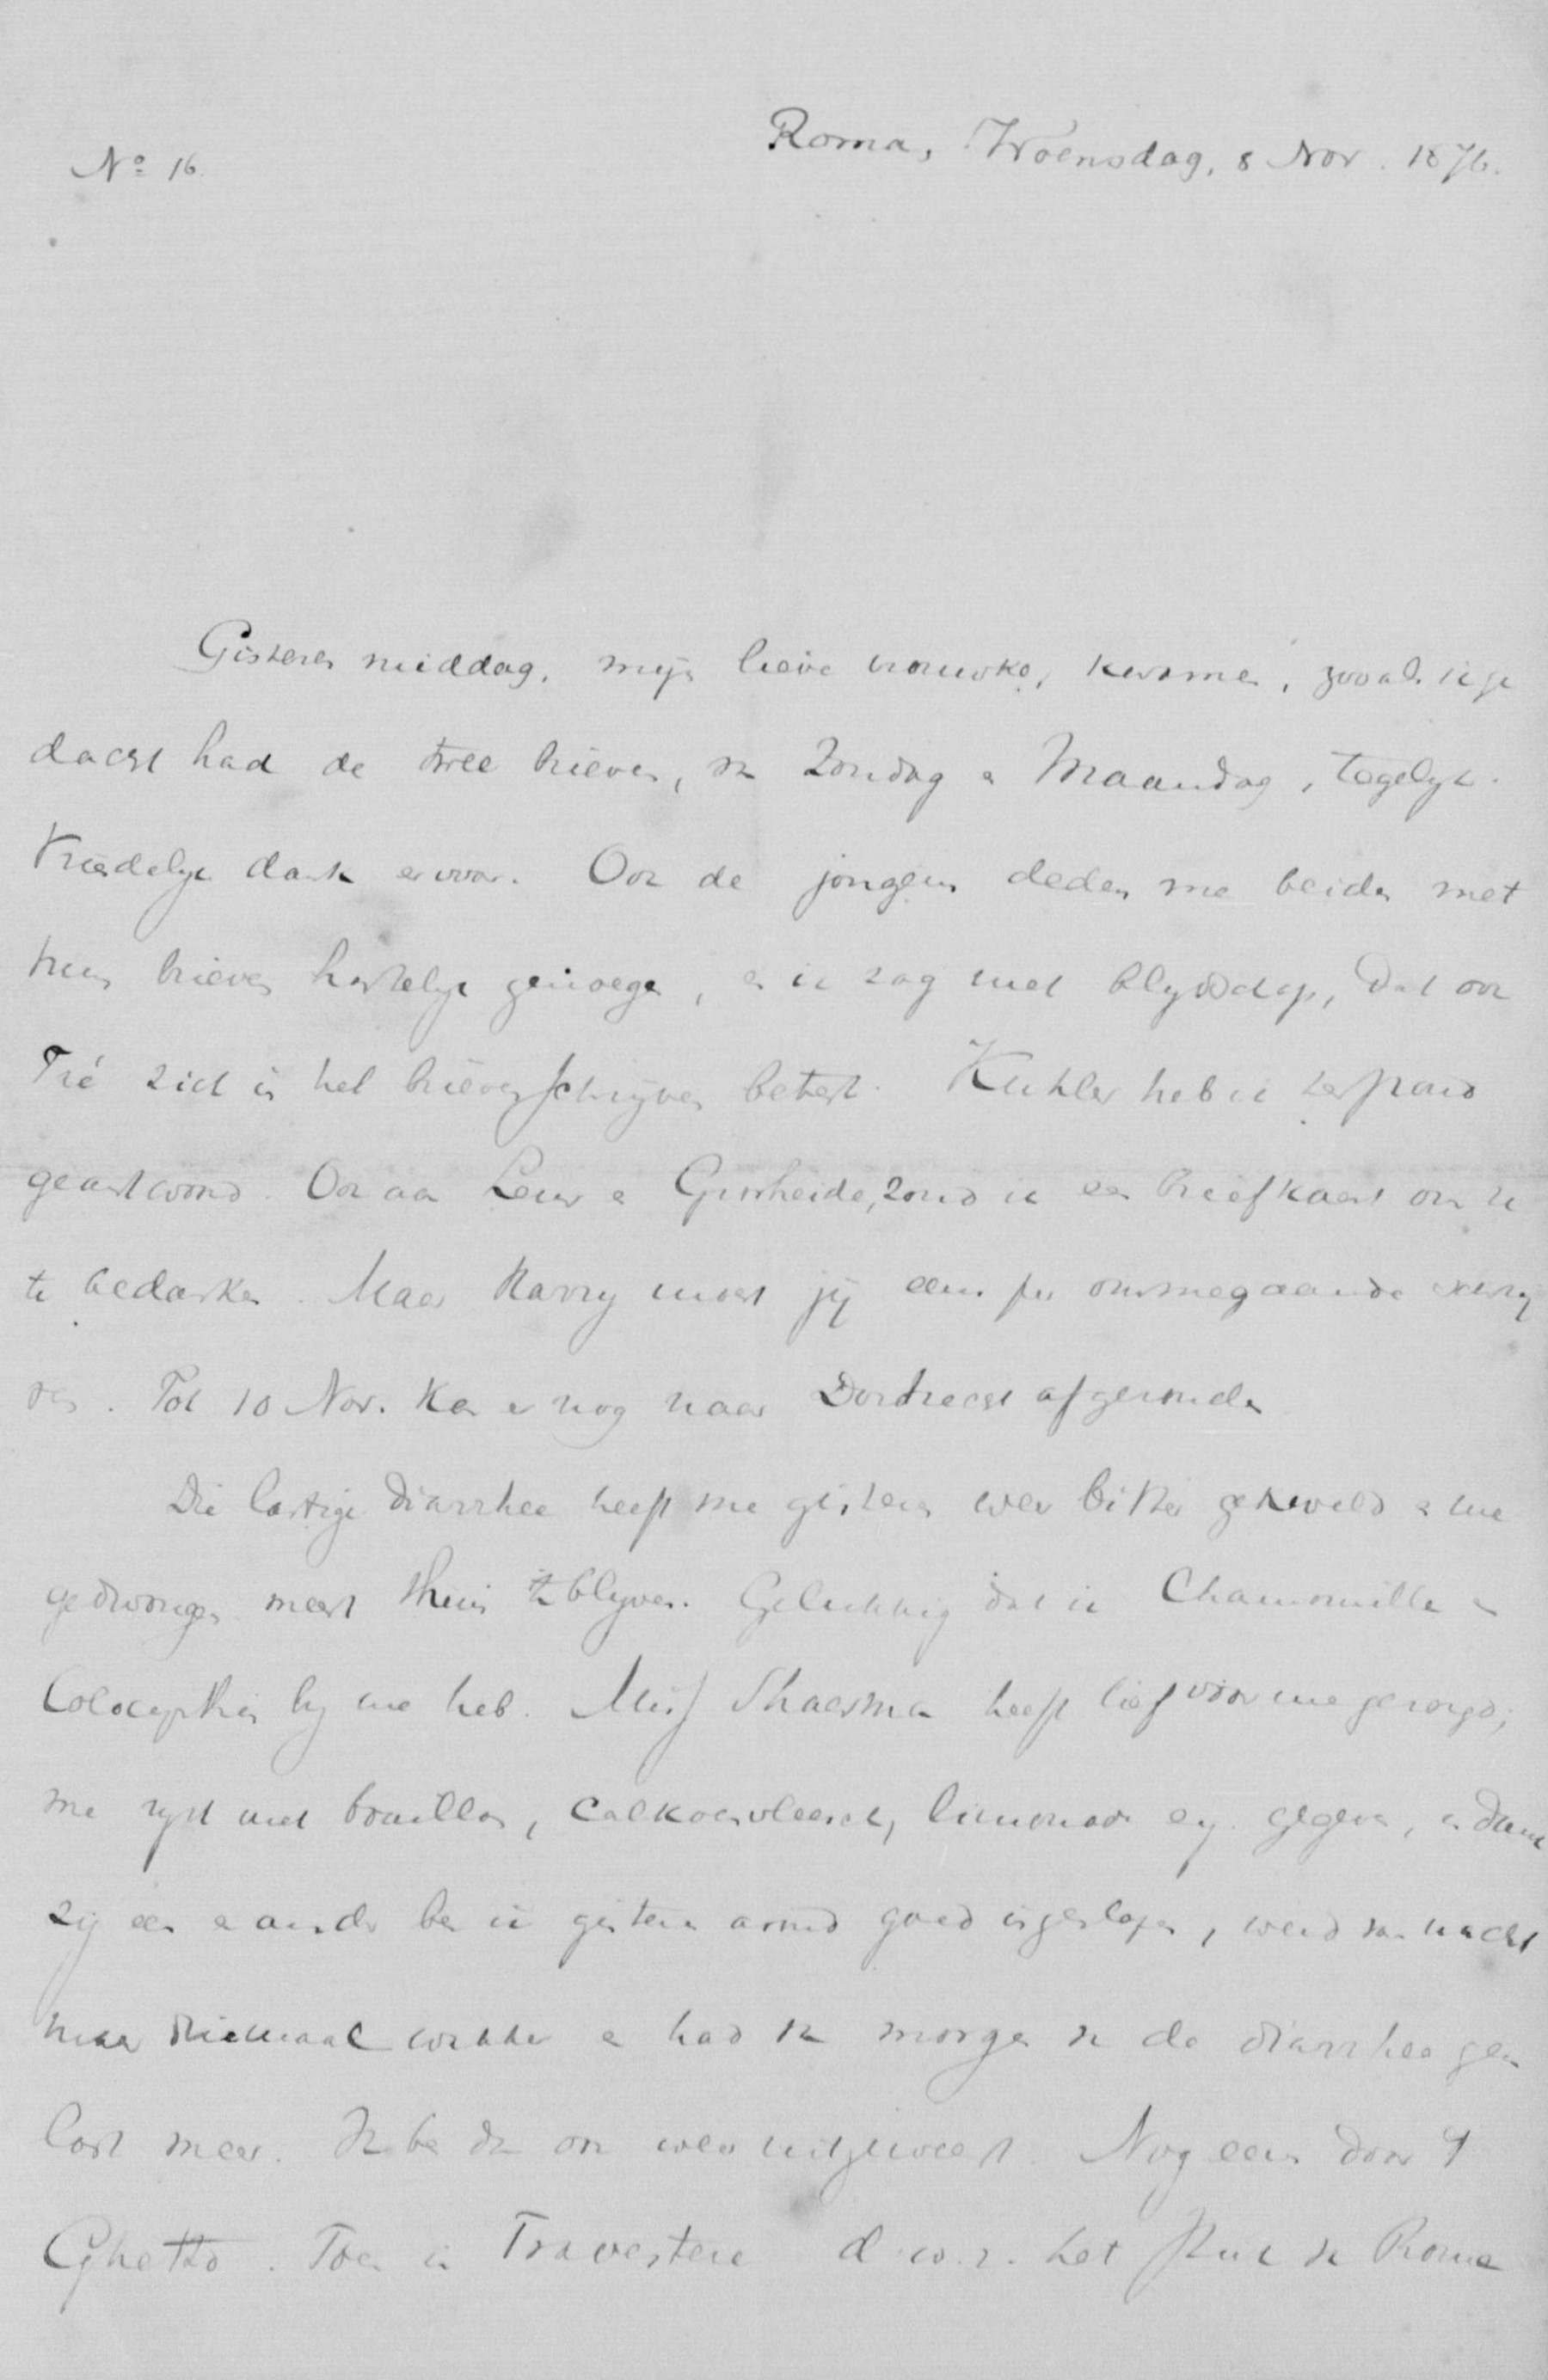 Nº 16.
Roma, Woensdag, 8 Nov. 1876.
Gisteren middag, mijn lieve vrouwke, kwamen, zooals ik ge
dacht had de twee brieven, van Zondag en Maandag, tegelyk.
Vriendelyk dank ervoor. Ook de jongens deden me beiden met
hun brieven hartelyk genoegen, en ik zag met blydschap, dat ook
Tré zich in het brievenschrijven betert. Kuhler heb ik terstond
geantwoord. Ook aan Leur en zond ik een briefkaart om te
te bedanken. Maar Harry moet jij eens per ommegaande schry
ven. Tot 10 Nov. kan er nog naar Dordrecht afgezonden
Die lastige diarrhee heeft me gisteren weer bitter gekweld en me
gedwongen meest thuis te blyven. Gelukkig dat ik Chamomilla en
Colocynthis by me heb. Miss Shaesma heeft lief voor me gezorgd;
me ryst met bouillon, calkoenvleesch, limonade enz. gegeven, en dank
zij een en ander ben ik gisteren avond goed ingeslapen, werd van nacht
maar driemaal wakker en had van morgen van de diarrhee geen
last meer. Ik ben dan ook weer uitgeweest. Nog eens door 't
Ghetto. Toen in Travestere d.w.z. het stuk van Rome